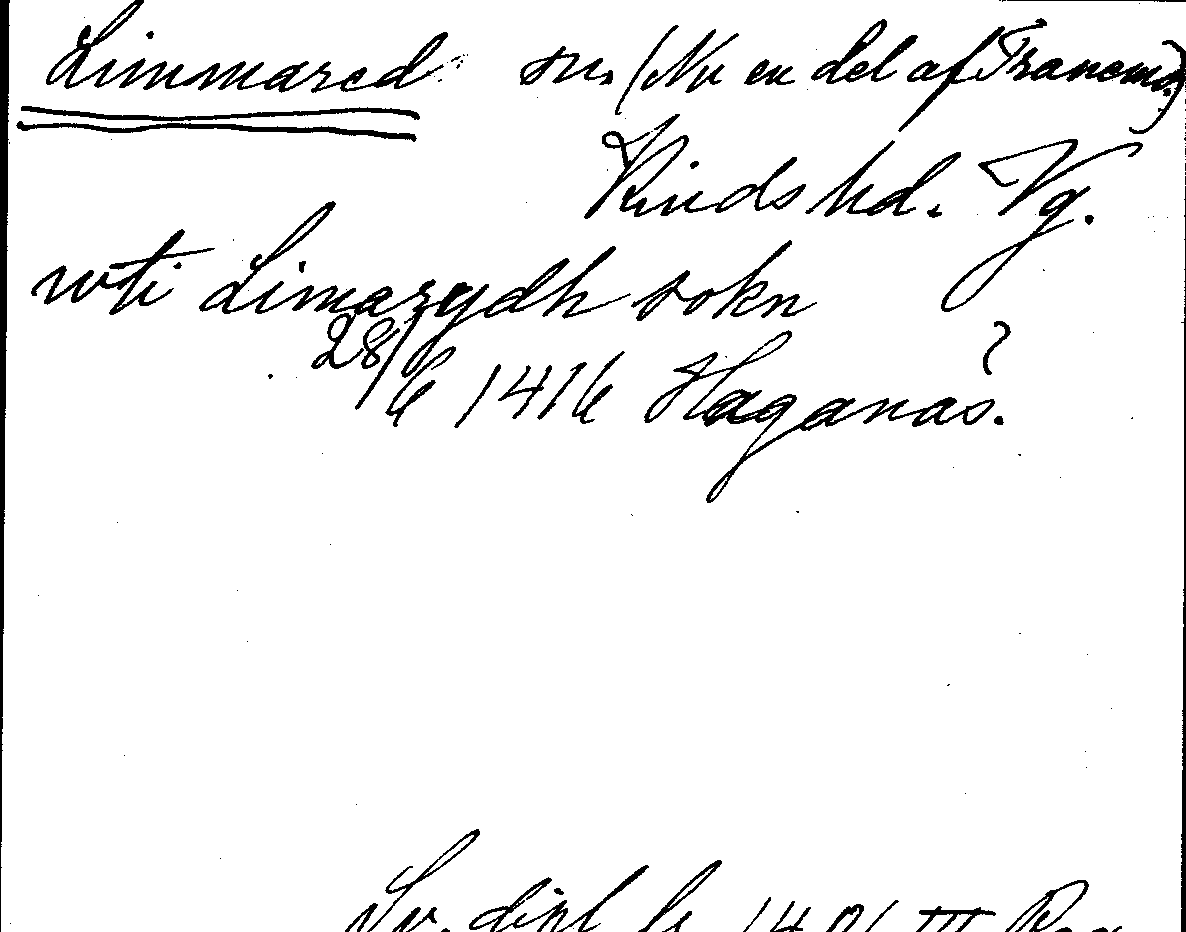 Limmared sn. (Nu en del af Tranemo)
Kinds hd. Vg.
wti Limarydh sokn
28/6 1416 Haganäs. ?
Sv. dipl fr 1401 III